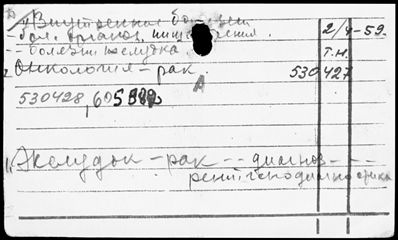 Внутренние болезни
бол. органов пищеварения.
- болезни желудка. Т.Н.
2/V-59.
2 Онкология - рак 530427
А
530428, 605
Желудок - рак -- диагноз ---
рентгенодиагностика